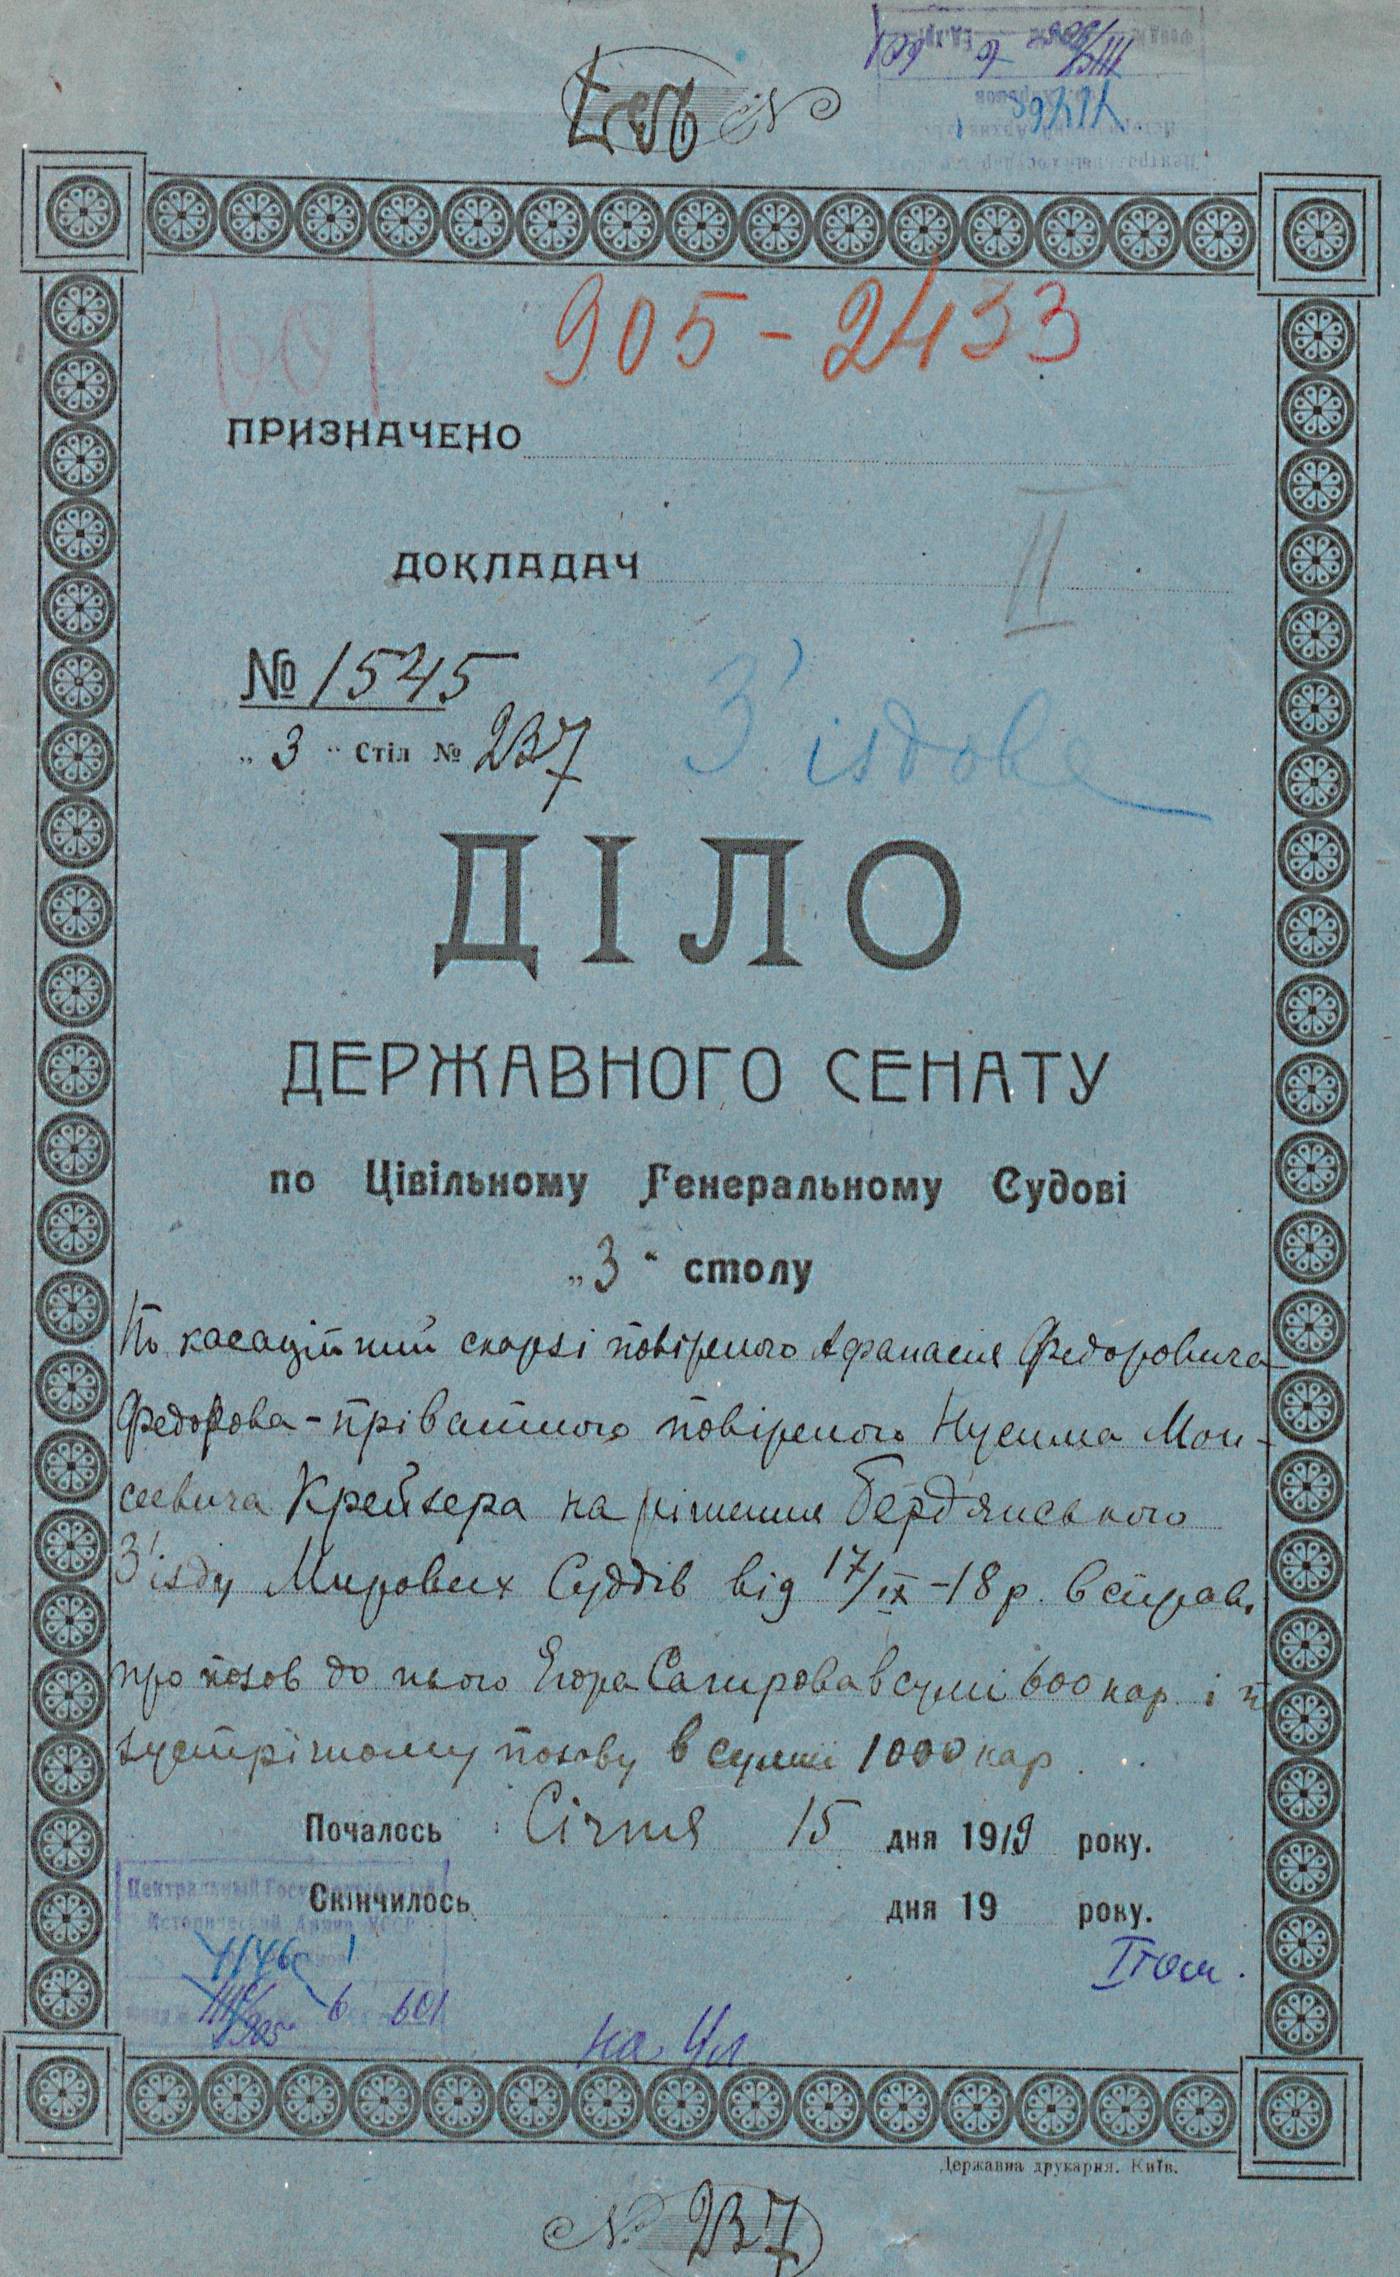 № 237
905-2433
601
ПРИЗНАЧЕНО
ДОКЛАДАЧ
II
№ 1545
„ 3 “ Стіл № 237
З'їздове
ДІЛО
ДЕРЖАВНОГО СЕНАТУ
по Цівільному Генеральному Судові
„3“ столу
По касаційний скарзі повіреного Афанасія Федоровича
Федорова - пріватного повіреного Нусима Мои-
сеевича Крейзера на рішення Бердянського
З'їзду Мирових Суддів від 17/IX-18 р. в справі
про позов до нього Егора Сагирова в сумі 600 кар. і п
зустрічному позову в суммі 1000 кар.
Почалось Січня 15 дня 1919 року.
Скінчилось дня 19 року.
Центральный Государственный
Исторический Архив УССР
6 601
905
I том.
на 4 л
Державна друкарня. Київ.
№ 237